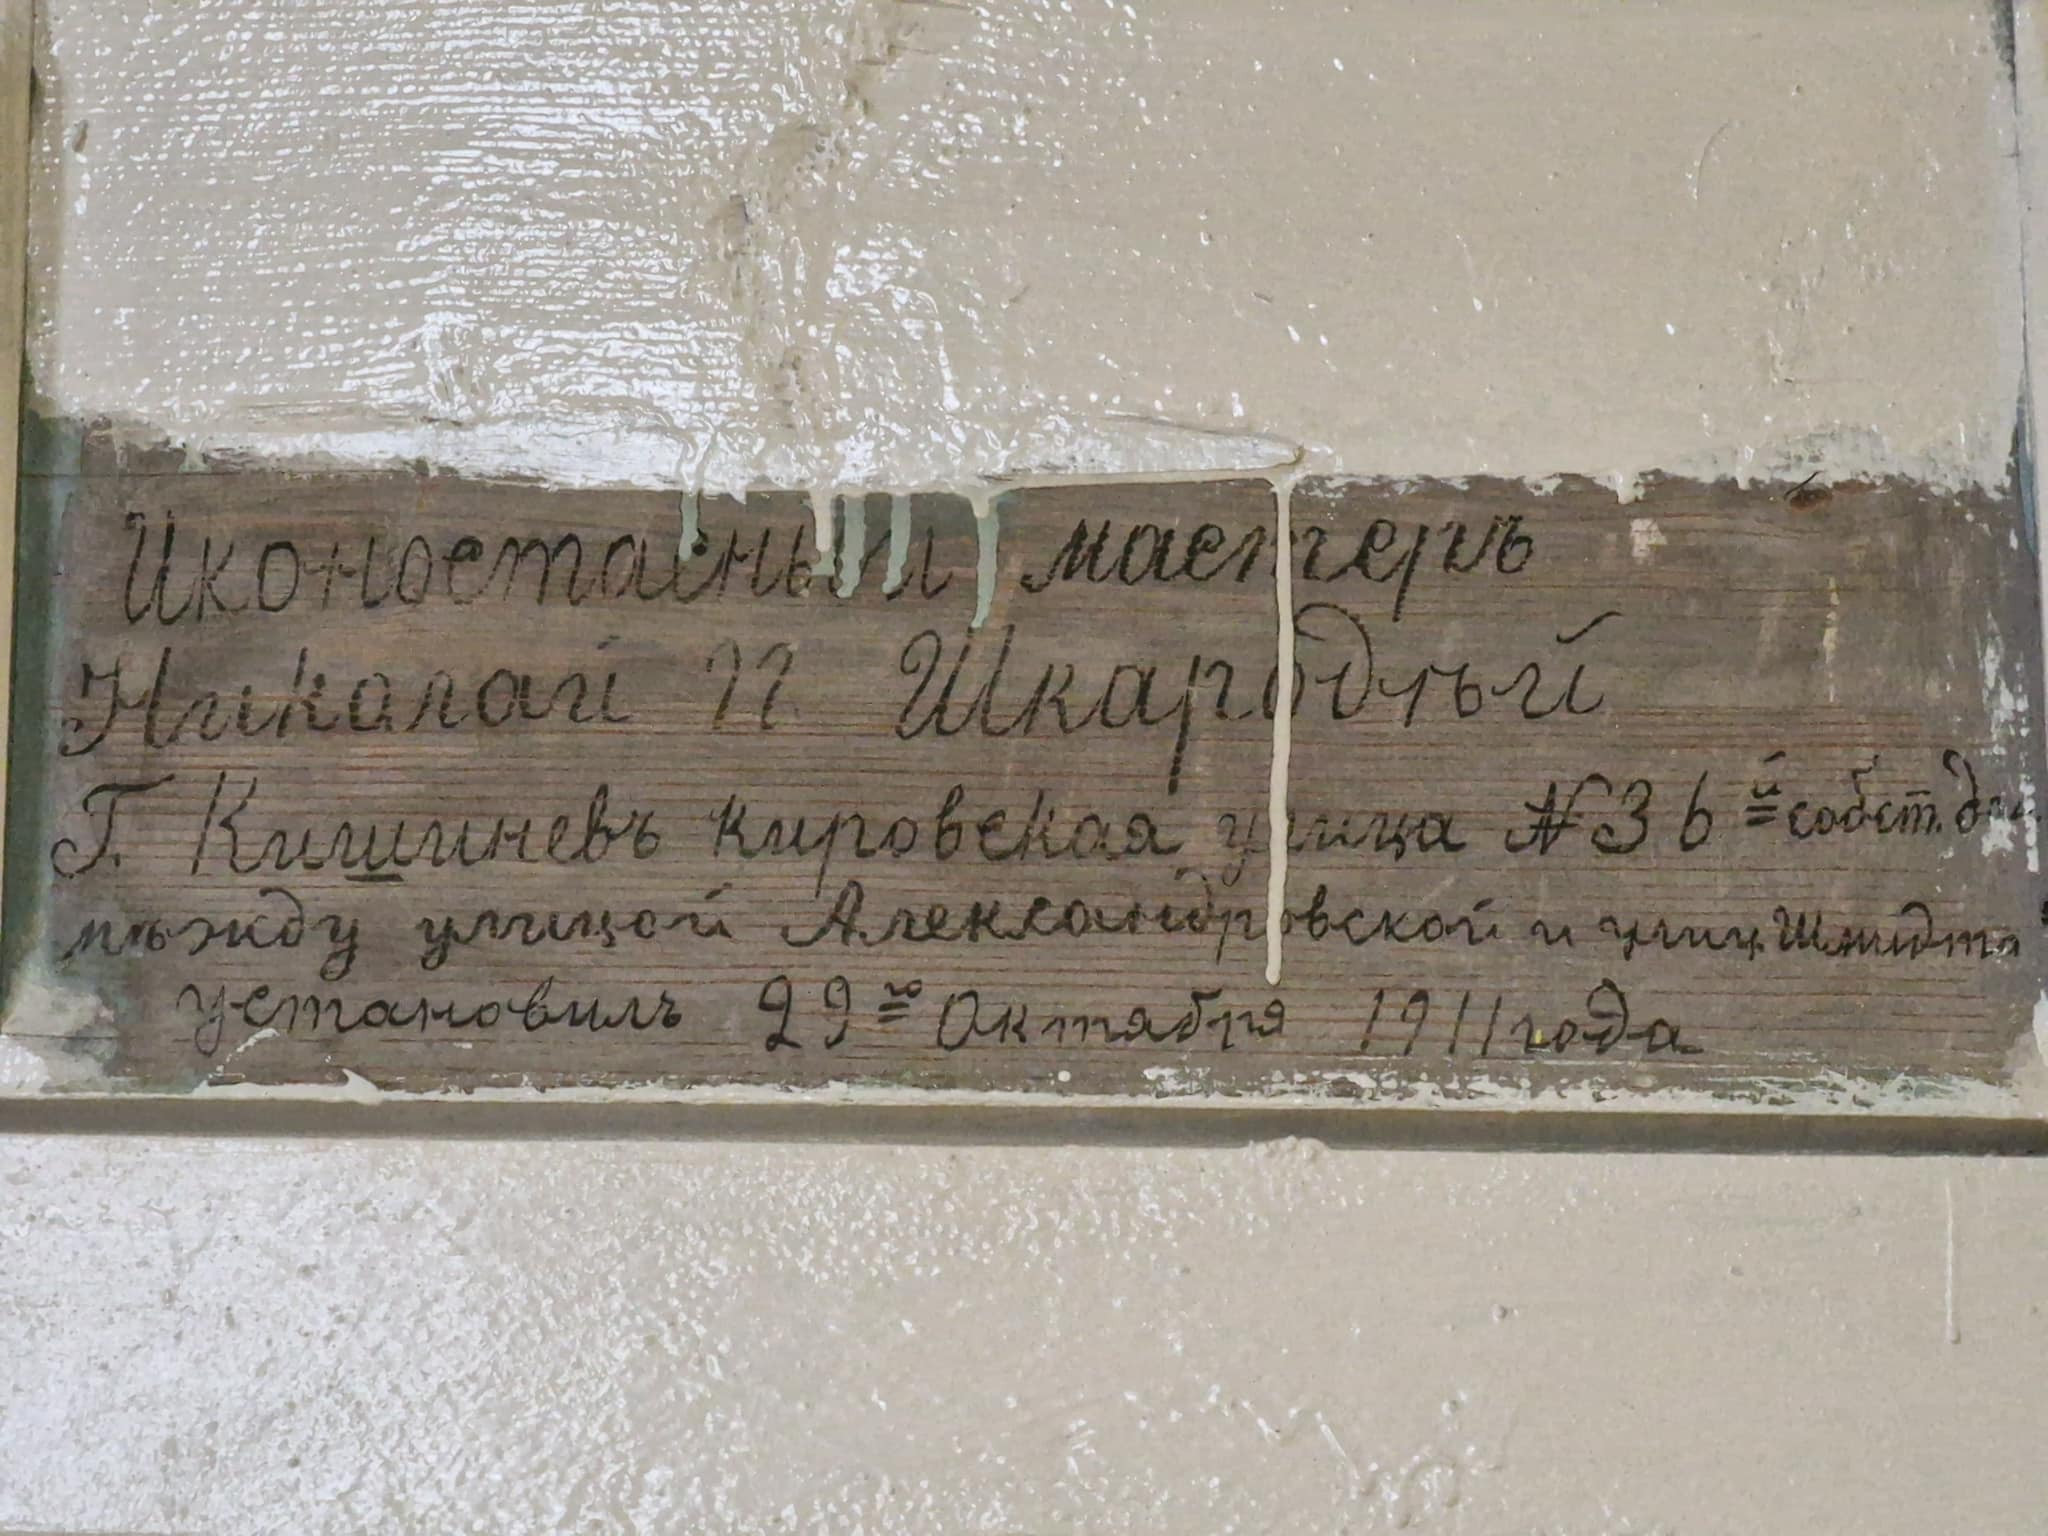 Иконостасный мастеръ
Николай П Шкародный
Г. Кишиневъ Кировская улица № 36 й собст.
мѣжду улицой Александровской и улиц Шмидта
установилъ 29 го Октября 1911 года